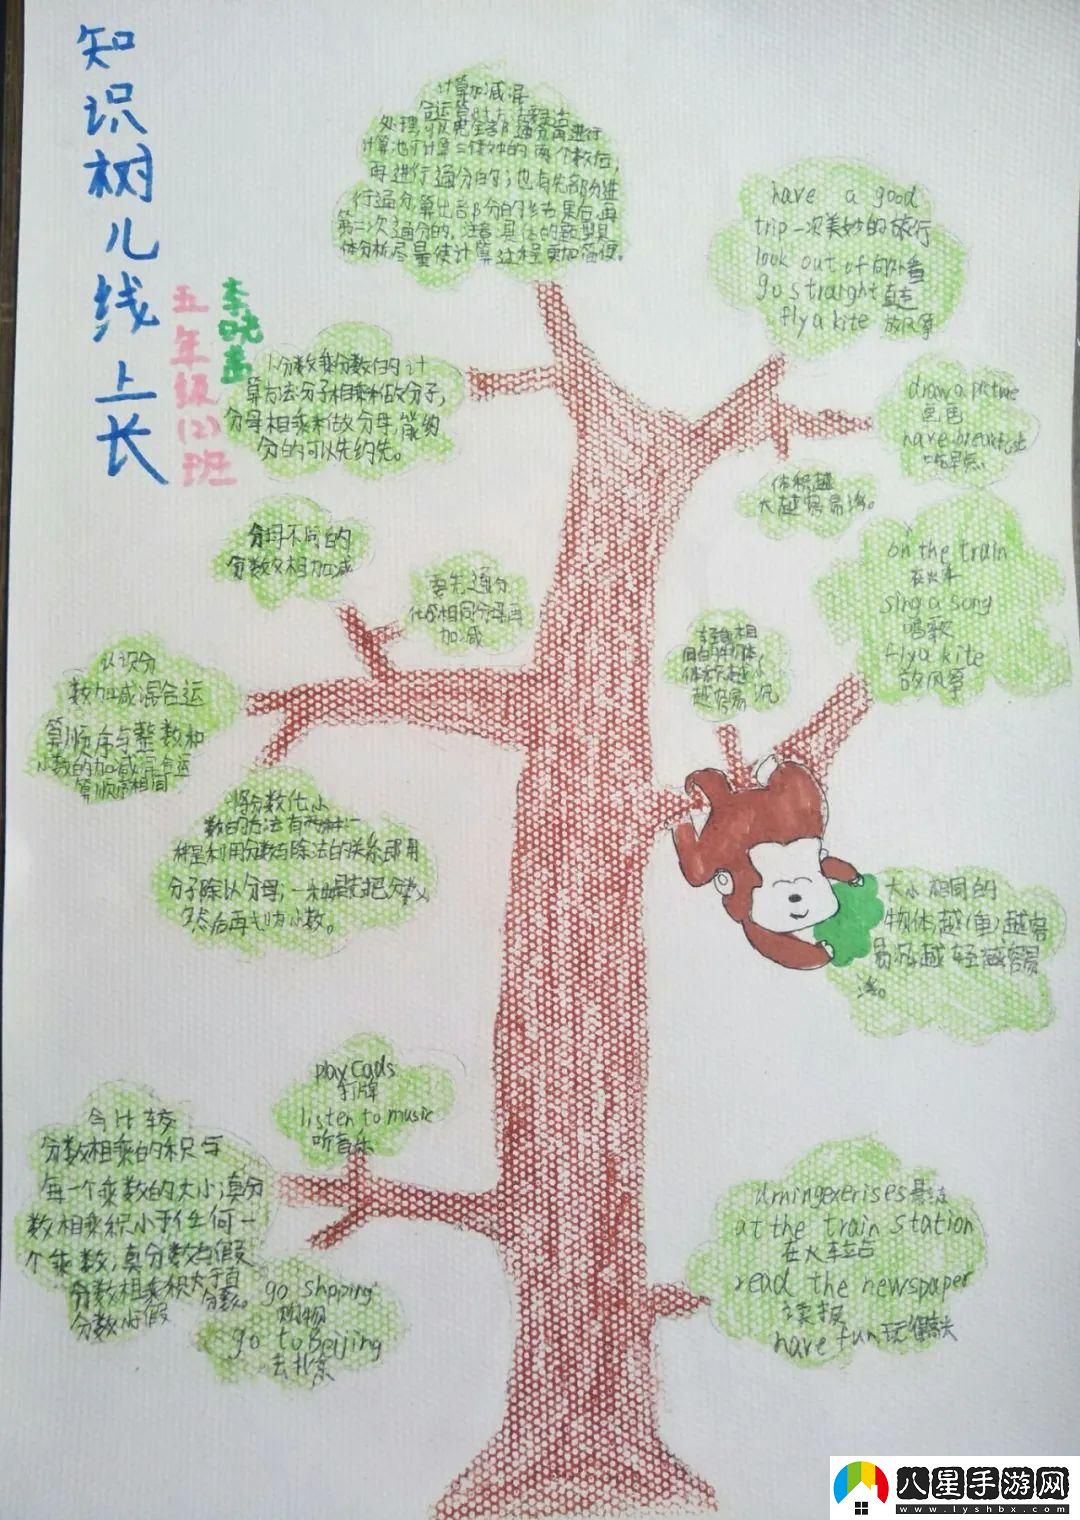 知识树儿线上长
五年级(2)班
计算加减混
处理可以先全部通分再进行
再进行通分的;也有先部分进
行通分算出部分的结果后再
第二次通分的。注意具体的题型具
体分析尽量使计算过程更加简便。
have a good
trip一次美妙的旅行
look out of向外看
go straight直走
fly a kite 放风筝
分数乘分数的计
算方法分子相乘积做分子,
分母相乘积做分母,能约
分的可以先约先。
draw a picture
画画
have breakfast
吃早点
体积越
大越容易浮。
分母不同的
分数相加减
要先通分
化成相同分母再
加减
on the train
在火车
sing a song
唱歌
fly a kite
放风筝
轻重相
同的物体,
体积越小
越容易沉
认识分
数加减混合运
算顺序与整数和
小数的加减混合运
算顺序相同
将分数化小
数的方法有两种一
种是利用分数与除法的关系即用
分子除以分母;一种是先把分数
然后再化为小数。
大小相同的
物体越(重)越容
易沉越轻越容易
浮。
play cads
打牌
listen to music
听音乐
分数相乘的积与
每一个乘数的大小;真分
数相乘积小于任何一
个乘数;真分数与假
分数相乘积大于真
分数
分数小假
go shpping
购物
go to Beijing
去北京
at the train station
在火车站
read the newspaper
读报
have fun玩得高兴
八星手游网
www.lyshbx.com